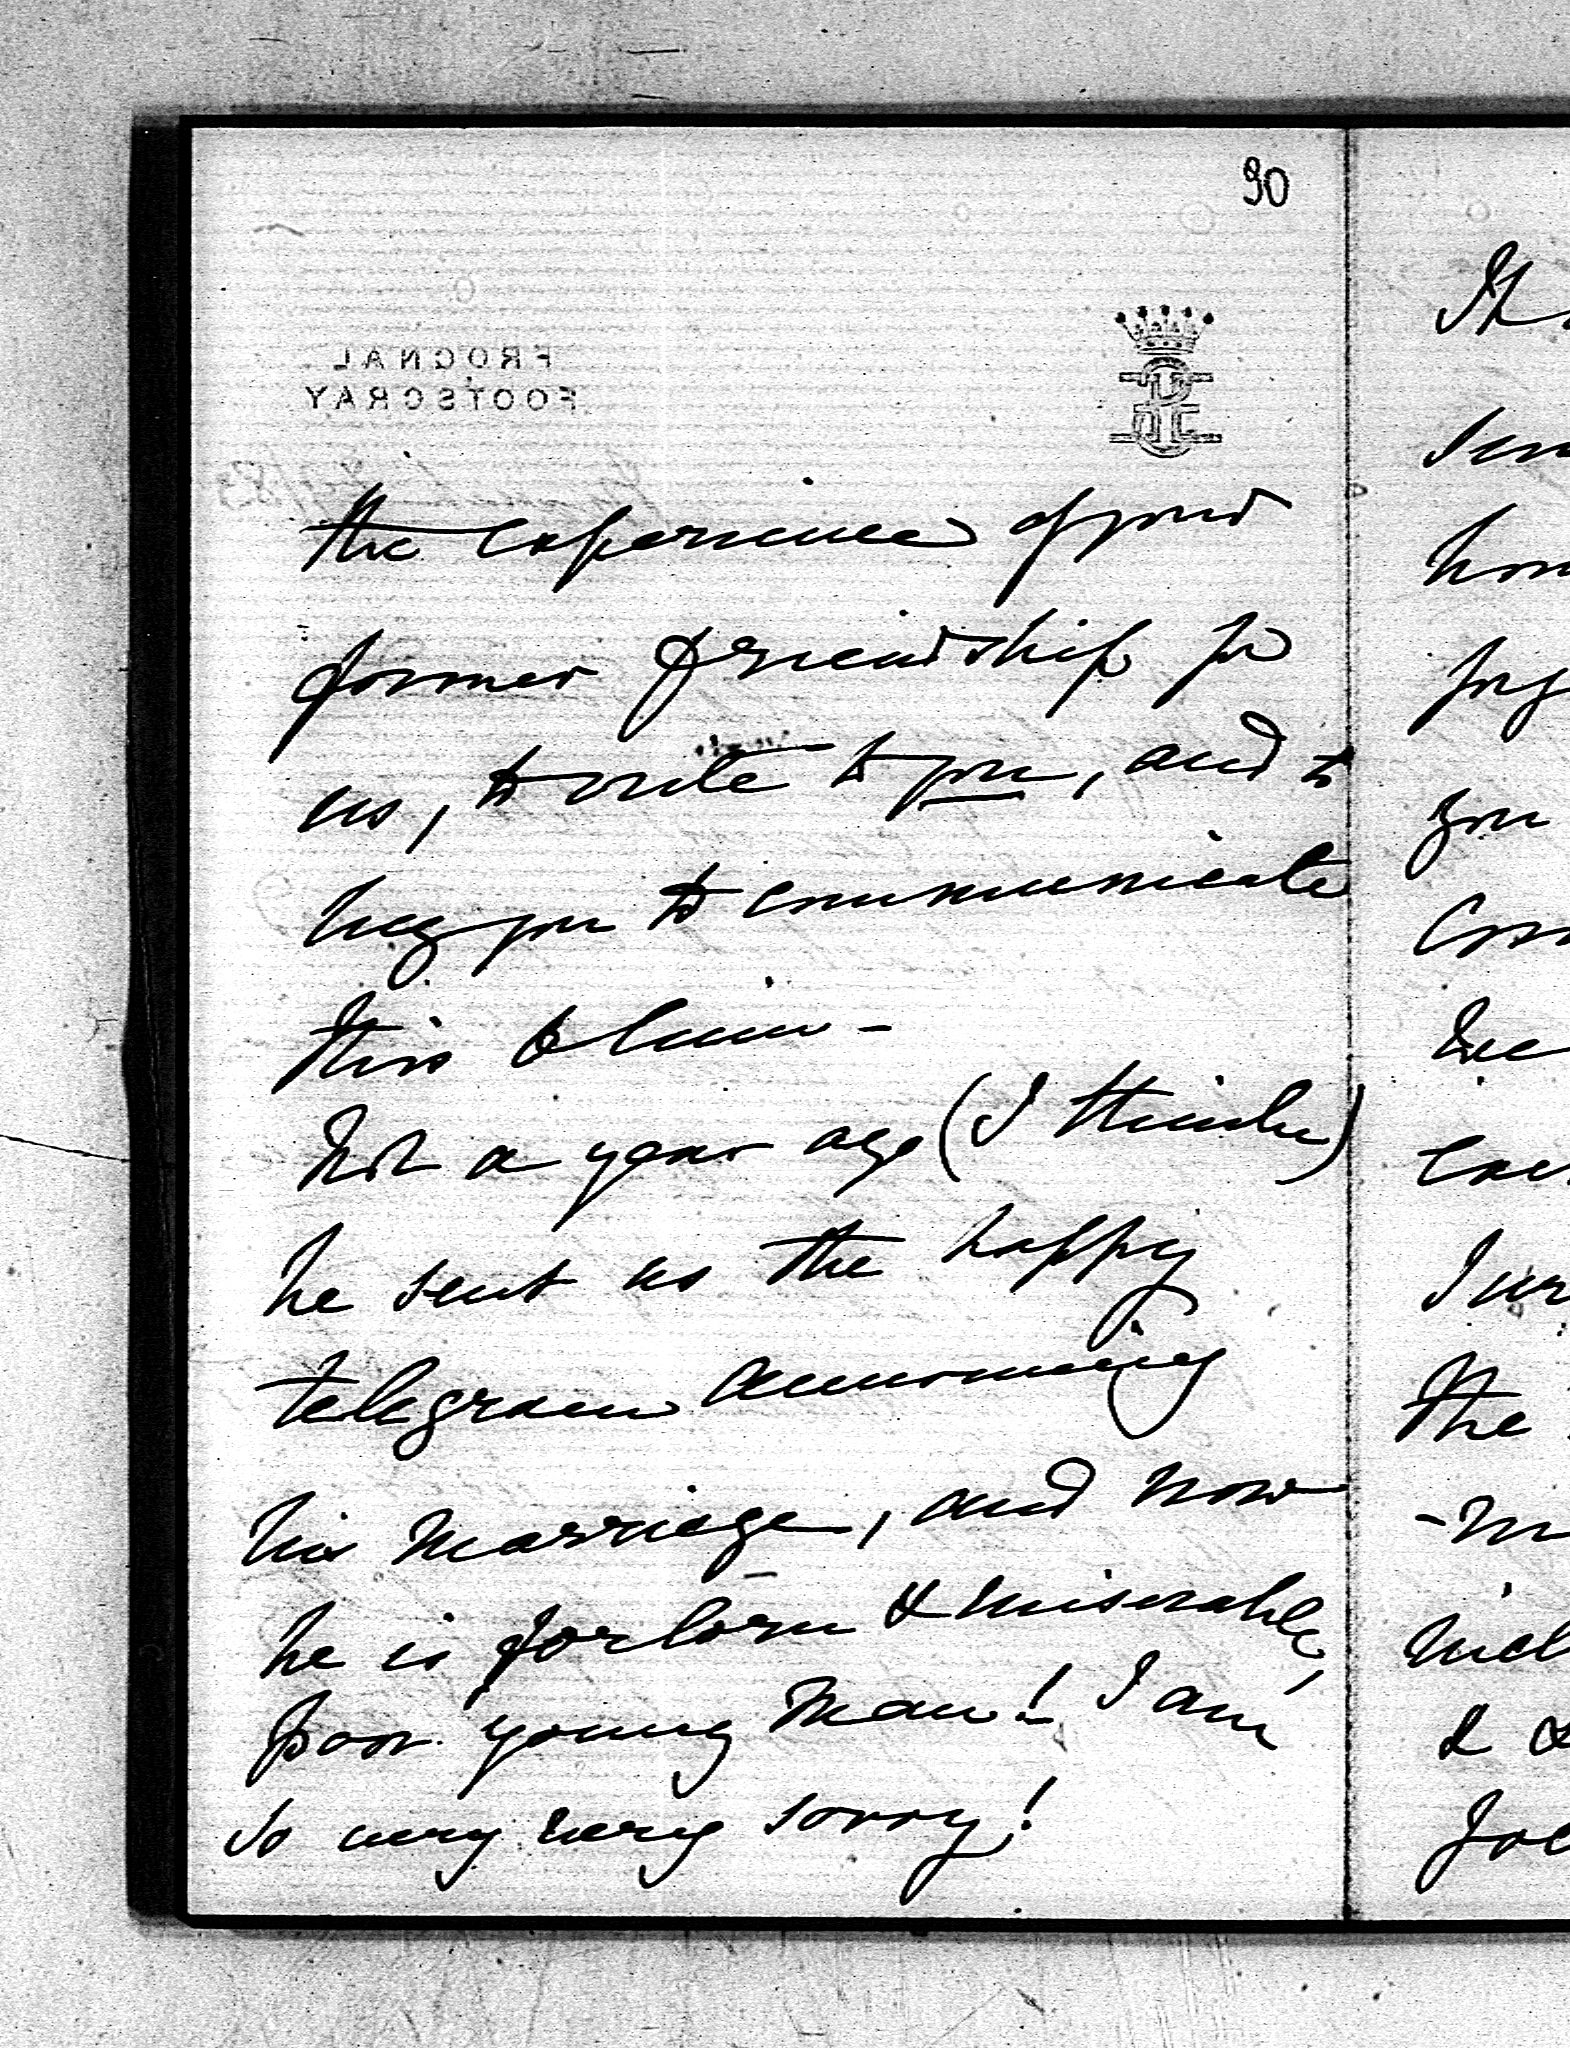 90
FROGNAL
FOOTSCRAY
the experience of your
former friendship for
us, to write to you, and to
beg you to communicate
this to him -
Not a year ago (I think)
he sent us the happy
telegram announcing
his marriage, and now
he is forlorn & miserable,
poor young man! I am
so very very sorry!
you
the